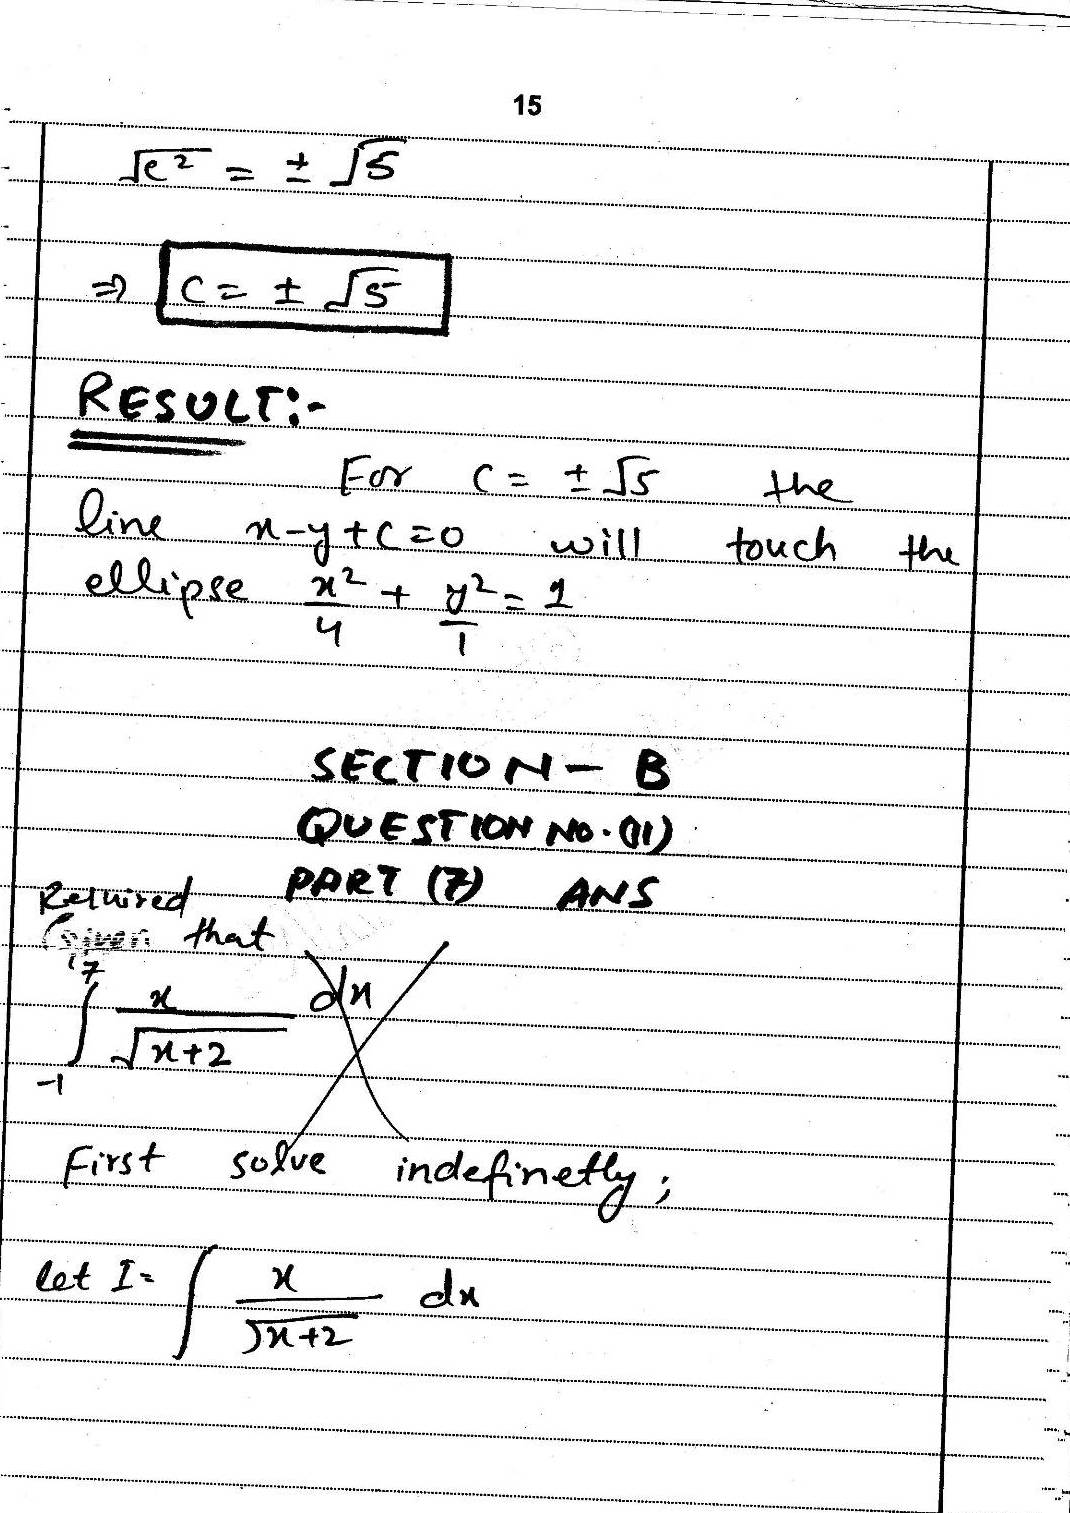 15
√c² = ± √5
⇒ c = ± √5
RESULT:-
For c = ± √5 the
line x-y+c=0 will touch the
ellipse x²/4 + y²/1 = 1
SECTION - B
QUESTION NO. (11)
PART (7) ANS
Reluired
Given that
∫₋₁⁷ x/√x+2 dx
First solve indefinetly;
let I = ∫ x/√x+2 dx